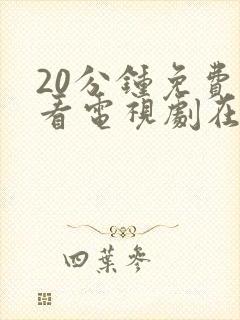 20分鍾免費
看電視劇在
四葉參